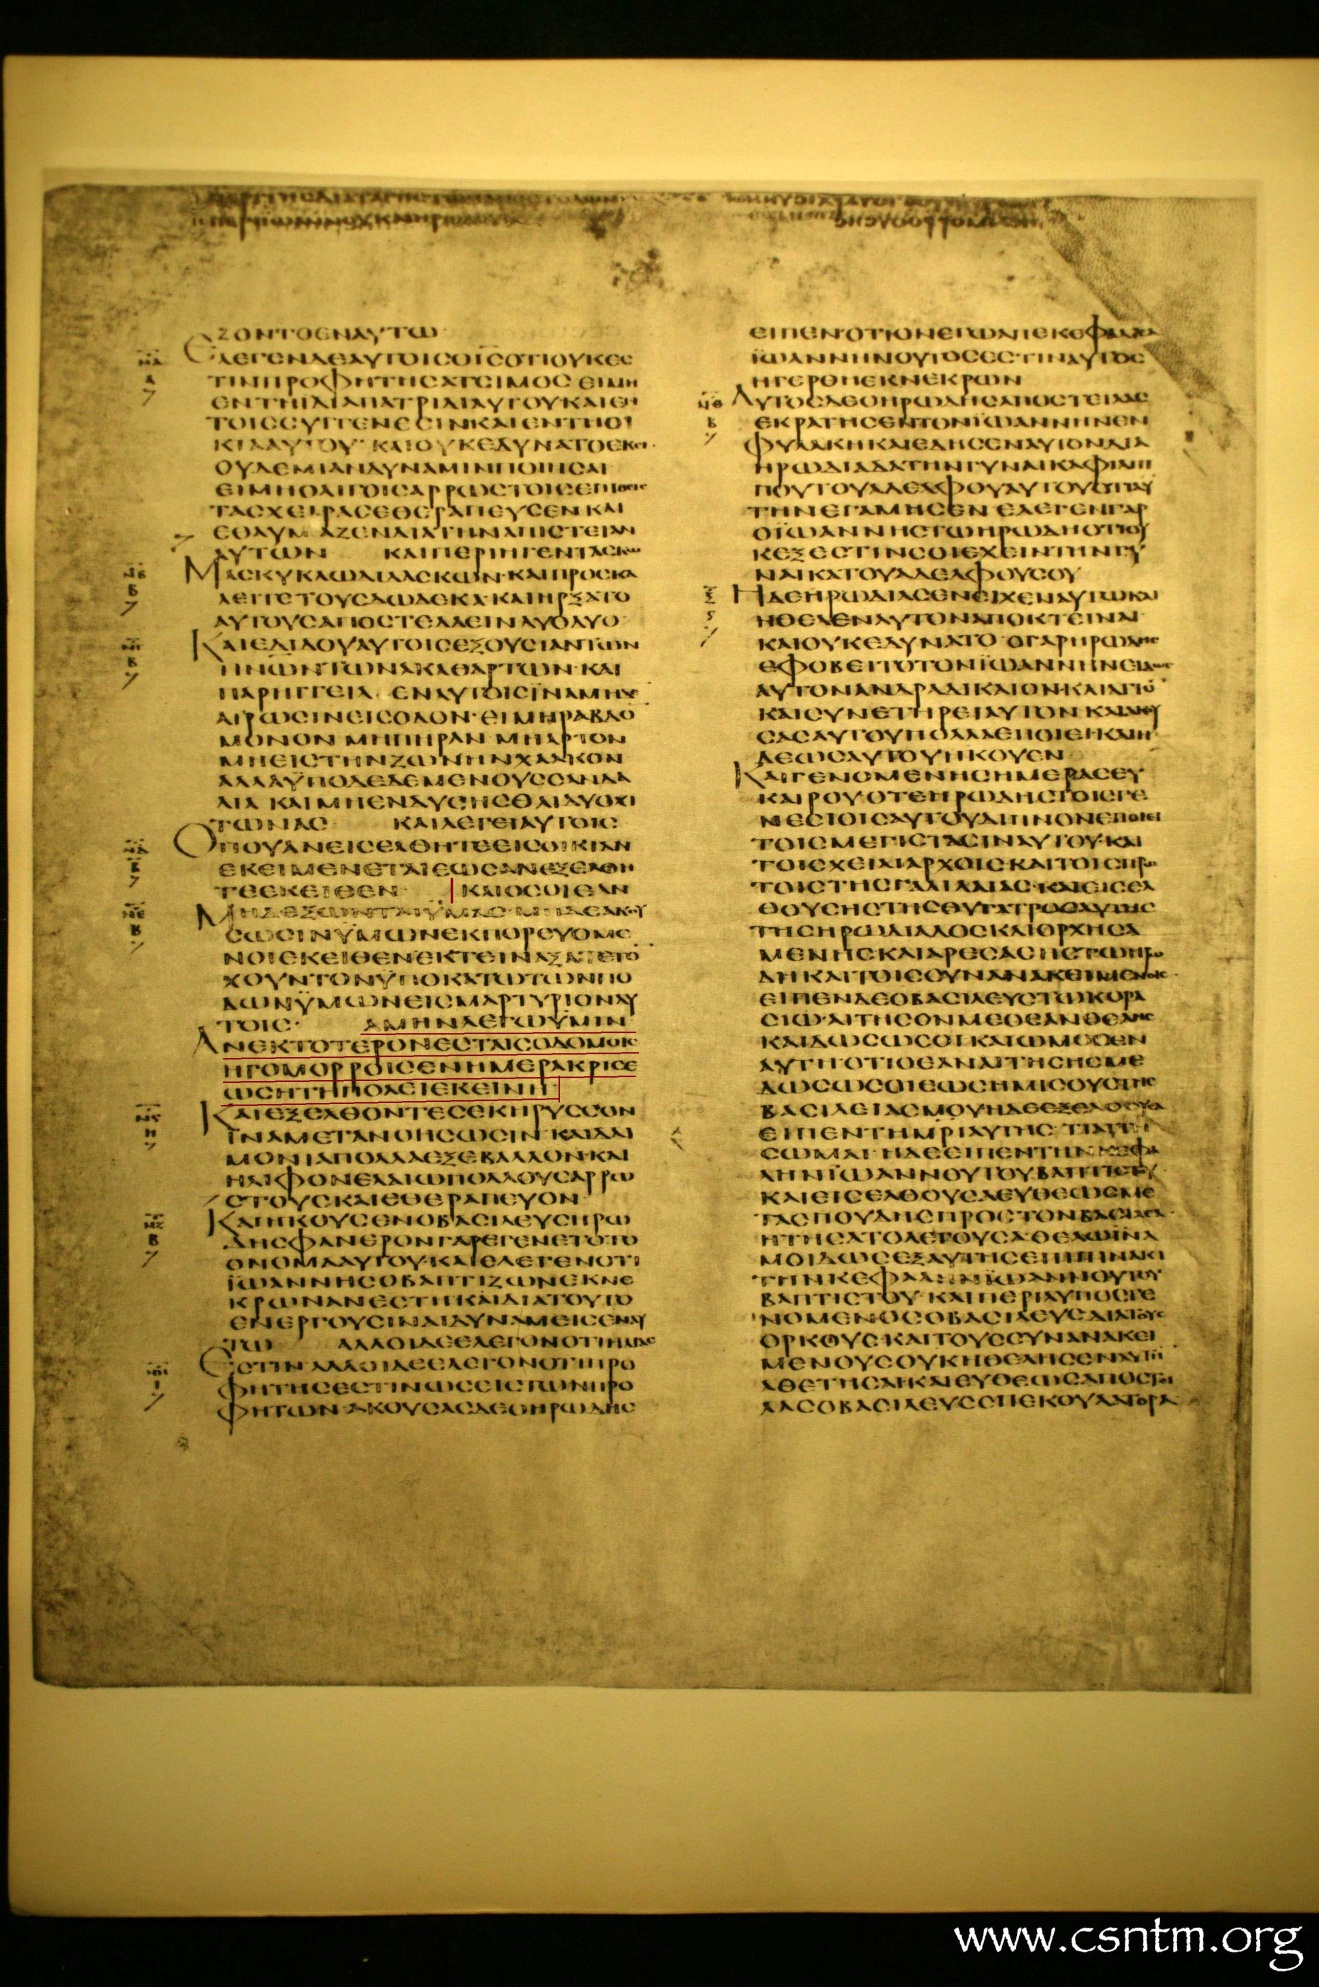 ΖΟΝΤΟΕΝΑΥΤΩ
ΕΛΕΓΕΝΔΕΑΥΤΟΙϹΟΙϹΟΤΙΟΥΚΕϹ
ΤΙΝΠΡΟΦΗΤΗϹΑΤΕΙΜΟϹΕΙΜΗ
ΕΝΤΗΙΔΙΑΠΑΤΡΙΔΙΑΥΤΟΥΚΑΙΕΝ
ΤΟΙϹϹΥΓΓΕΝΕϹΙΝΚΑΙΕΝΤΗΟΙ
ΚΙΑΑΥΤΟΥ·ΚΑΙΟΥΚΕΔΥΝΑΤΟΕΚΕΙ·
ΟΥΔΕΜΙΑΝΔΥΝΑΜΙΝΠΟΙΗϹΑΙ
ΕΙΜΗΟΛΙΓΟΙϹΑΡΡΩϹΤΟΙϹΕΠΙΘΕΙϹ
ΤΑϹΧΕΙΡΑϹΕΘΕΡΑΠΕΥϹΕΝΚΑΙ
ΕΘΑΥΜΑΖΕΝΔΙΑΤΗΝΑΠΙϹΤΕΙΑΝ
ΑΥΤΩΝ ΚΑΙΠΕΡΙΗΓΕΝΤΑϹΚΩ
ΜΑϹΚΥΚΛΩΔΙΔΑϹΚΩΝ·ΚΑΙΠΡΟϹΚΑ
ΛΕΙΤΕΤΟΥϹΔΩΔΕΚΑ·ΚΑΙΗΡΞΑΤΟ
ΑΥΤΟΥϹΑΠΟϹΤΕΛΛΕΙΝΔΥΟΔΥΟ
ΚΑΙΕΔΙΔΟΥΑΥΤΟΙϹΕΞΟΥϹΙΑΝΤΩΝ
ΠΝΩΝΤΩΝΑΚΑΘΑΡΤΩΝ·ΚΑΙ
ΠΑΡΗΓΓΕΙΛΕΝΑΥΤΟΙϹΪΝΑΜΗΔΕ
ΑΙΡΩϹΙΝΕΙϹΟΔΟΝ·ΕΙΜΗΡΑΒΔΟ
ΜΟΝΟΝ·ΜΗΠΗΡΑΝ·ΜΗΑΡΤΟΝ
ΜΗΕΙϹΤΗΝΖΩΝΗΝΧΑΛΚΟΝ
ΑΛΛΑΫΠΟΔΕΔΕΜΕΝΟΥϹϹΑΝΔΑ
ΛΙΑ·ΚΑΙΜΗΕΝΔΥϹΗϹΘΑΙΔΥΟΧΙ
ΤΩΝΑϹ ΚΑΙΛΕΓΕΙΑΥΤΟΙϹ
ΟΠΟΥΑΝΕΙϹΕΛΘΗΤΕΕΙϹΟΙΚΙΑΝ
ΕΚΕΙΜΕΝΕΤΑΙΕΩϹΑΝΕΞΕΛΘΗ
ΤΕΕΚΕΙΘΕΝ ΚΑΙΟϹΟΙΕΑΝ
ΜΗΔΕΞΩΝΤΑΙΫΜΑϹ·ΜΗΔΕΑΚΟΥ
ϹΩϹΙΝΫΜΩΝΕΚΠΟΡΕΥΟΜΕ
ΝΟΙΕΚΕΙΘΕΝΕΚΤΕΙΝΑΞΑΤΕΤΟ
ΧΟΥΝΤΟΝΫΠΟΚΑΤΩΤΩΝΠΟ
ΔΩΝΫΜΩΝΕΙϹΜΑΡΤΥΡΙΟΝΑΥ
ΤΟΙϹ· ΑΜΗΝΛΕΓΩΫΜΙΝ
ΑΝΕΚΤΟΤΕΡΟΝΕϹΤΑΙϹΟΔΟΜΟΙϹ
ΗΓΟΜΟΡΡΟΙϹΕΝΗΜΕΡΑΚΡΙϹΕ
ΩϹΗΤΗΠΟΛΕΙΕΚΕΙΝΗ
ΚΑΙΕΞΕΛΘΟΝΤΕϹΕΚΗΡΥϹϹΟΝ
ΪΝΑΜΕΤΑΝΟΗϹΩϹΙΝ·ΚΑΙΔΑΙ
ΜΟΝΙΑΠΟΛΛΑΕΞΕΒΑΛΛΟΝ·ΚΑΙ
ΗΛΙΦΟΝΕΛΑΙΩΠΟΛΛΟΥϹΑΡΡΩ
ϹΤΟΥϹΚΑΙΕΘΕΡΑΠΕΥΟΝ
ΚΑΙΗΚΟΥϹΕΝΟΒΑϹΙΛΕΥϹΗΡΩ
ΔΗϹΦΑΝΕΡΟΝΓΑΡΕΓΕΝΕΤΟΤΟ
ΟΝΟΜΑΑΥΤΟΥ·ΚΑΙΕΛΕΓΕΝΟΤΙ
ΪΩΑΝΝΗϹΟΒΑΠΤΙΖΩΝΕΚΝΕ
ΚΡΩΝΑΝΕϹΤΗΚΑΙΔΙΑΤΟΥΤΟ
ΕΝΕΡΓΟΥϹΙΝΑΙΔΥΝΑΜΕΙϹΕΝΑΥ
ΤΩ ΑΛΛΟΙΔΕΕΛΕΓΟΝΟΤΙΗΛΙΑϹ
ΕϹΤΙΝΑΛΛΟΙΔΕΕΛΕΓΟΝΟΤΙΠΡΟ
ΦΗΤΗϹΕϹΤΙΝΩϹΕΙϹΤΩΝΠΡΟ
ΦΗΤΩΝ·ΑΚΟΥϹΑϹΔΕΟΗΡΩΔΗϹ
ΕΙΠΕΝΟΤΙΟΝΕΓΩΑΠΕΚΕΦΑΛΙϹΑ
ΪΩΑΝΝΗΝΟΥΤΟϹΕϹΤΙΝΑΥΤΟϹ
ΗΓΕΡΘΗΕΚΝΕΚΡΩΝ
ΑΥΤΟϹΔΕΟΗΡΩΔΗϹΑΠΟϹΤΕΙΛΑϹ
ΕΚΡΑΤΗϹΕΝΤΟΝΪΩΑΝΝΗΝΕΝ
ΦΥΛΑΚΗΚΑΙΕΔΗϹΕΝΑΥΤΟΝΔΙΑ
ΗΡΩΔΙΑΔΑΤΗΝΓΥΝΑΙΚΑΦΙΛΙΠ
ΠΟΥΤΟΥΑΔΕΛΦΟΥΑΥΤΟΥΟΤΙΑΥ
ΤΗΝΕΓΑΜΗϹΕΝ·ΕΛΕΓΕΝΓΑΡ
ΟΪΩΑΝΝΗϹΤΩΗΡΩΔΗΟΤΙΟΥ
ΚΕΞΕϹΤΙΝϹΟΙΕΧΕΙΝΤΗΝΓΥ
ΝΑΙΚΑΤΟΥΑΔΕΛΦΟΥϹΟΥ
ΗΔΕΗΡΩΔΙΑϹΕΝΕΙΧΕΝΑΥΤΩΚΑΙ
ΗΘΕΛΕΝΑΥΤΟΝΑΠΟΚΤΕΙΝΑΙ
ΚΑΙΟΥΚΕΔΥΝΑΤΟ·ΟΓΑΡΗΡΩΔΗϹ
ΕΦΟΒΕΙΤΟΤΟΝΪΩΑΝΝΗΝΕΙΔΩϹ
ΑΥΤΟΝΑΝΔΡΑΔΙΚΑΙΟΝ·ΚΑΙΑΓΙΟ
ΚΑΙϹΥΝΕΤΗΡΕΙΑΥΤΟΝΚΑΙΑΚΟΥ
ϹΑϹΑΥΤΟΥΠΟΛΛΑΕΠΟΙΕΙ·ΚΑΙΗ
ΔΕΩϹΑΥΤΟΥΗΚΟΥΕΝ
ΚΑΙΓΕΝΟΜΕΝΗϹΗΜΕΡΑϹΕΥ
ΚΑΙΡΟΥ·ΟΤΕΗΡΩΔΗϹΤΟΙϹΓΕ
ΝΕϹΙΟΙϹΑΥΤΟΥΔΙΠΝΟΝΕΠΟΙΕΙ
ΤΟΙϹΜΕΓΙϹΤΑϹΙΝΑΥΤΟΥ·ΚΑΙ
ΤΟΙϹΧΕΙΛΙΑΡΧΟΙϹΚΑΙΤΟΙϹΠΡΩ
ΤΟΙϹΤΗϹΓΑΛΙΛΑΙΑϹ·ΚΑΙΕΙϹΕΛ
ΘΟΥϹΗϹΤΗϹΘΥΓΑΤΡΟϹΑΥΤΗϹ
ΤΗϹΗΡΩΔΙΑΔΟϹΚΑΙΟΡΧΗϹΑ
ΜΕΝΗϹΚΑΙΑΡΕϹΑϹΗϹΤΩΗΡΩ
ΔΗΚΑΙΤΟΙϹϹΥΝΑΝΑΚΕΙΜΕΝΟΙϹ·
ΕΙΠΕΝΔΕΟΒΑϹΙΛΕΥϹΤΩΚΟΡΑ
ϹΙΩ·ΑΙΤΗϹΟΝΜΕΟΕΑΝΘΕΛΗϹ
ΚΑΙΔΩϹΩϹΟΙ·ΚΑΙΩΜΟϹΕΝ
ΑΥΤΗΟΤΙΟΕΑΝΑΙΤΗϹΗϹΜΕ
ΔΩϹΩϹΟΙΕΩϹΗΜΙϹΟΥϹΤΗϹ
ΒΑϹΙΛΕΙΑϹΜΟΥΗΔΕΕΞΕΛΘΟΥϹΑ
ΕΙΠΕΝΤΗΜΡΙΑΥΤΗϹ·ΤΙΑΙΤΗ
ϹΩΜΑΙ·ΗΔΕΕΙΠΕΝΤΗΝΚΕΦΑ
ΛΗΝΪΩΑΝΝΟΥΤΟΥΒΑΠΤΙϹΤΟΥ
ΚΑΙΕΙϹΕΛΘΟΥϹΑΕΥΘΕΩϹΜΕ
ΤΑϹΠΟΥΔΗϹΠΡΟϹΤΟΝΒΑϹΙΛΕΑ·
ΗΤΗϹΑΤΟΛΕΓΟΥϹΑ·ΘΕΛΩΪΝΑ
ΜΟΙΔΩϹΕΞΑΥΤΗϹΕΠΙΠΙΝΑΚΙ
ΤΗΝΚΕΦΑΛΗΝΪΩΑΝΝΟΥΤΟΥ
ΒΑΠΤΙϹΤΟΥ·ΚΑΙΠΕΡΙΛΥΠΟϹΓΕ
ΝΟΜΕΝΟϹΟΒΑϹΙΛΕΥϹΔΙΑΤΟΥϹ
ΟΡΚΟΥϹ·ΚΑΙΤΟΥϹϹΥΝΑΝΑΚΕΙ
ΜΕΝΟΥϹΟΥΚΗΘΕΛΗϹΕΝΑΥΤΗ
ΑΘΕΤΗϹΑΙ·ΚΑΙΕΥΘΕΩϹΑΠΟϹΤΙ
ΛΑϹΟΒΑϹΙΛΕΥϹϹΠΕΚΟΥΛΑΤΟΡΑ
www.csntm.org